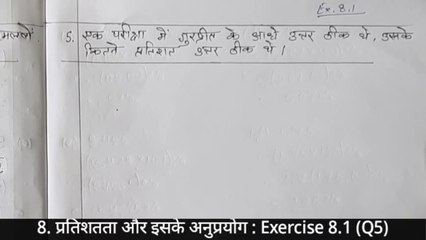 Ex. 8.1
5. एक परीक्षा में गुरप्रीत के आधे उत्तर ठीक थे, उसके
कितने प्रतिशत उत्तर ठीक थे।
8. प्रतिशतता और इसके अनुप्रयोग : Exercise 8.1 (Q5)